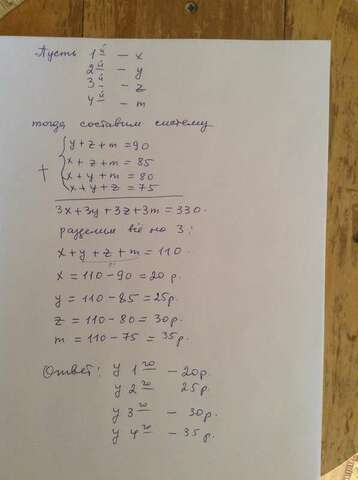 Пусть 1й - x
2й - y
3й - z
4й - m
тогда составим систему
y+z+m=90
x+z+m=85
+
x+y+m=80
x+y+z=75
3x+3y+3z+3m=330.
разделим всё на 3:
x+y+z+m=110
x=110-90=20 р.
y=110-85=25р.
z=110-80=30р.
m=110-75=35р.
Ответ: у 1го - 20р.
у 2го 25р.
у 3го - 30р.
у 4го - 35р.